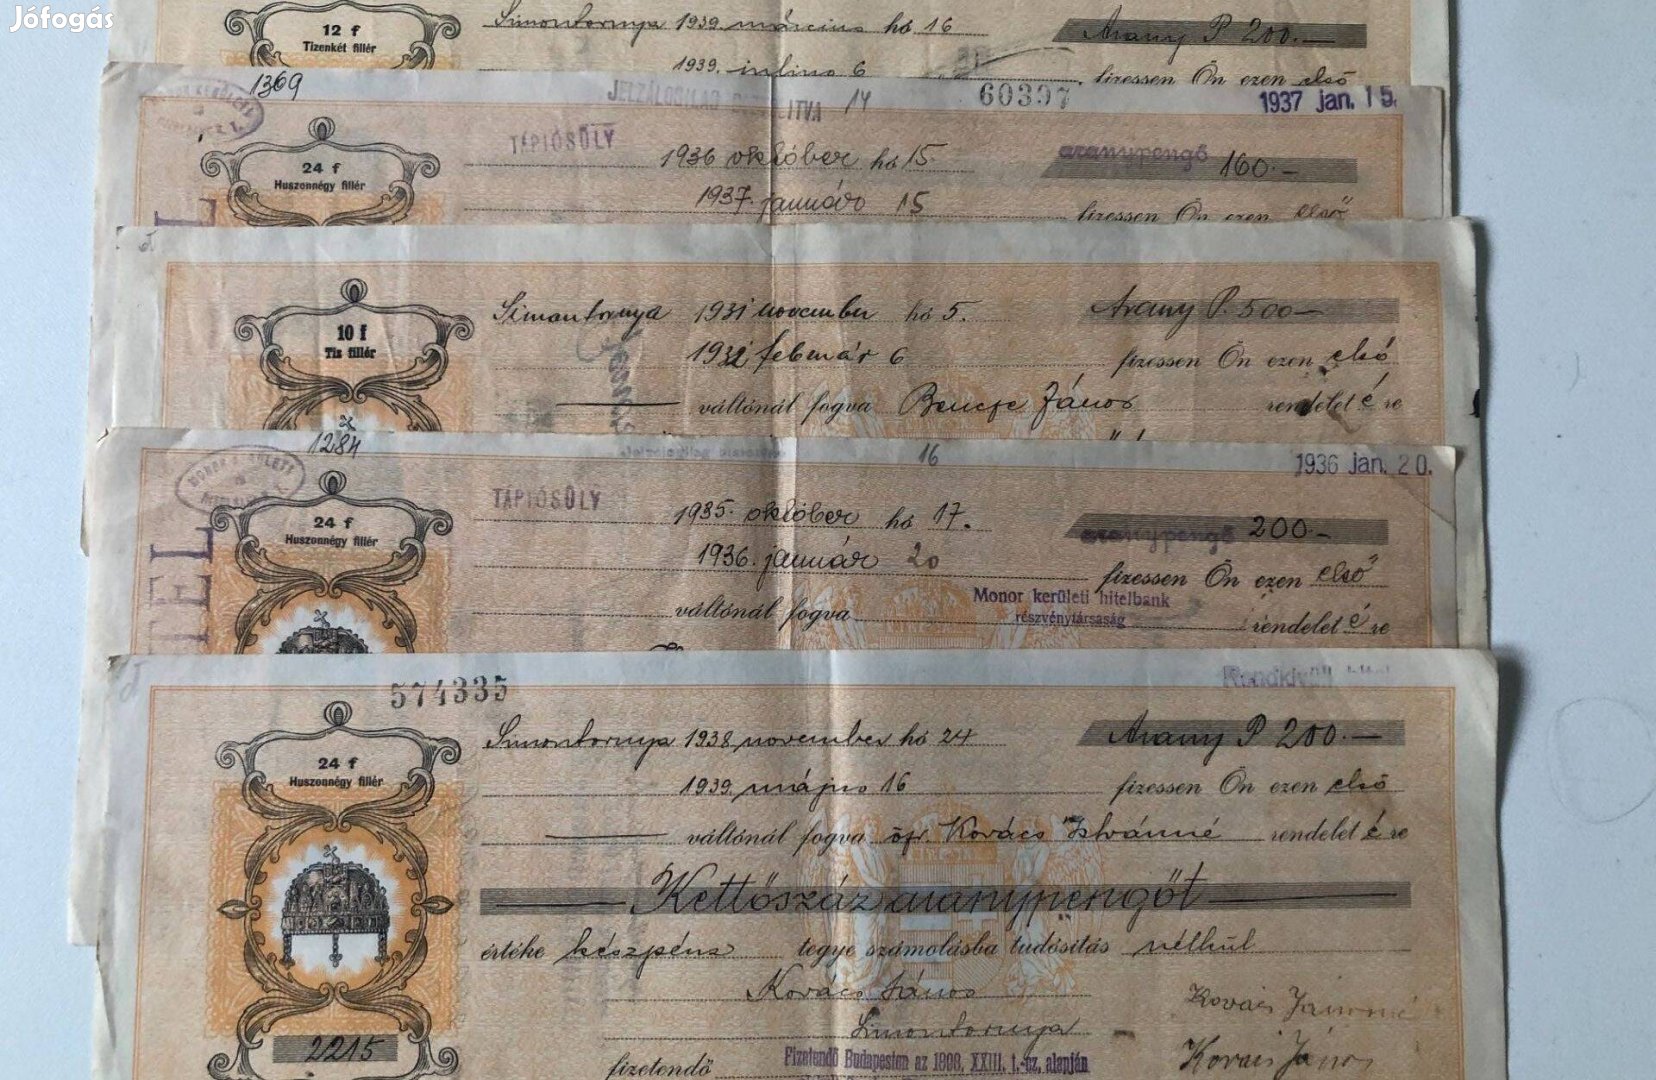 Jófogás
12 f
Tizenkét fillér
Simontornya 1939 március hó 16
Arany P 200.—
1939. julius 6
fizessen Ön ezen első
1369
JELZÁLOGILAG
14
60397
1937 jan. 15.
TÁPIÓSÜLY
24 f
Huszonnégy fillér
1936 október hó 15.
aranypengő 160.—
1937. január 15
fizessen Ön ezen első
10 f
Tiz fillér
Simontornya 1931 november hó 5.
Arany P. 500—
1932 február 6
fizessen Ön ezen első
váltónál fogva Bencze János rendelet é re
1284
16
1936 jan. 20.
TÁPIÓSÜLY
24 f
Huszonnégy fillér
1935. október hó 17.
aranypengő 200.—
1936. január 20
fizessen Ön ezen első
TEL
váltónál fogva
Monor kerületi hitelbank
részvénytársaság
rendelet é re
574335
24 f
Huszonnégy fillér
Simontornya 1938 november hó 24
Arany P 200.—
1939. május 16
fizessen Ön ezen első
váltónál fogva özv. Kovács Istvánné rendelet é re
Kettőszáz aranypengőt
értéke készpénz tegye számolásba tudósitás nélkül
Kovács János
Simontornya
Kovács Jánosné
2215
fizetendő
Fizetendő Budapesten az 1908. XXIII. t.-cz. alapján
Kovács János